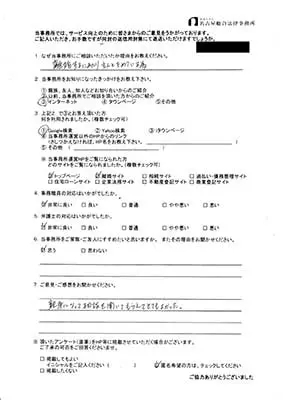 名古屋総合法律事務所
当事務所では、サービス向上のために皆さまからのご意見をうかがっております。
ご記入いただき、お手数ですが同封の返信用封筒にて返送いただけますでしょうか。
1 なぜ当事務所にご相談いただいたか理由をお教えください。
2 当事務所をお知りになったきっかけをお教え下さい。
①親族、友人、知人などお知り合いからのご紹介
②以前、当事務所でご相談を頂いた方からのご紹介
③インターネット ④タウンページ ⑤その他
3 上記2.で③とお答え頂いた方
何を利用されましたか。(複数チェック可)
①Google検索 ②Yahoo検索 ③iタウンページ
④当事務所運営以外のHPからのリンク
さしつかえなければ、HP名をお教え下さい。
⑤その他
※当事務所運営HPをご覧になられた方
どのサイトをご覧になられましたか。(複数チェック可)
トップページ 離婚サイト 相続サイト 過払い・債務整理サイト
住宅ローンサイト 企業法務サイト 不動産登記サイト 商業登記サイト
4 事務職員の対応はいかがでしたか。
非常に良い 良い 普通 やや悪い 悪い
5 弁護士の対応はいかがでしたか。
非常に良い 良い 普通 やや悪い 悪い
6 当事務所をご家族・ご友人にすすめたいと思いますか。またその理由をお聞かせ下さい。
思う 思わない
7 ご意見・ご感想をお聞かせください。
親身になってお話を聞いてもらえてとてもよかった。
8 頂いたアンケート(直筆)をHP等に掲載させていただく場合がございます。
ご了承の可否をご回答くださいませ。
掲載してもよい
イニシャルをご記入ください( ) 匿名希望の方は、チェックしてください
掲載したくない
ご協力ありがとうございました